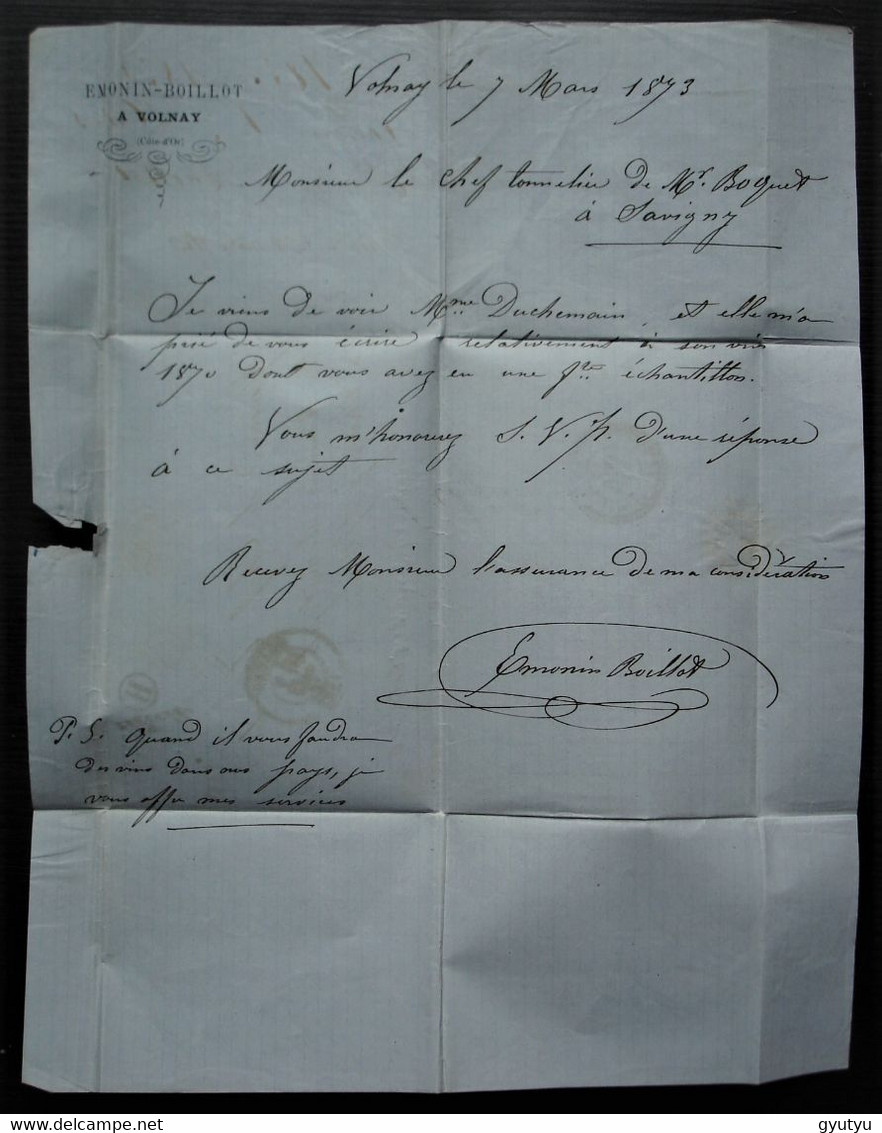 EMONIN-BOILLOT
A VOLNAY
(Côte-d'Or)
Volnay le 7 Mars 1873
Monsieur le chef tonnelier de Mr. Boquet
à Savigny
Je viens de voir Mme Duchemain, et elle m'a
prié de vous écrire relativement à son vin
1870 dont vous avez eu une pte échantillon.
Vous m'honorerez S. V. P. d'une réponse
à ce sujet
Recevez Monsieur l'assurance de ma considération
Emonin Boillot
P. S. Quand il vous faudra
des vins dans nos pays, je
vous offre mes services
delcampe.net
gyutyu